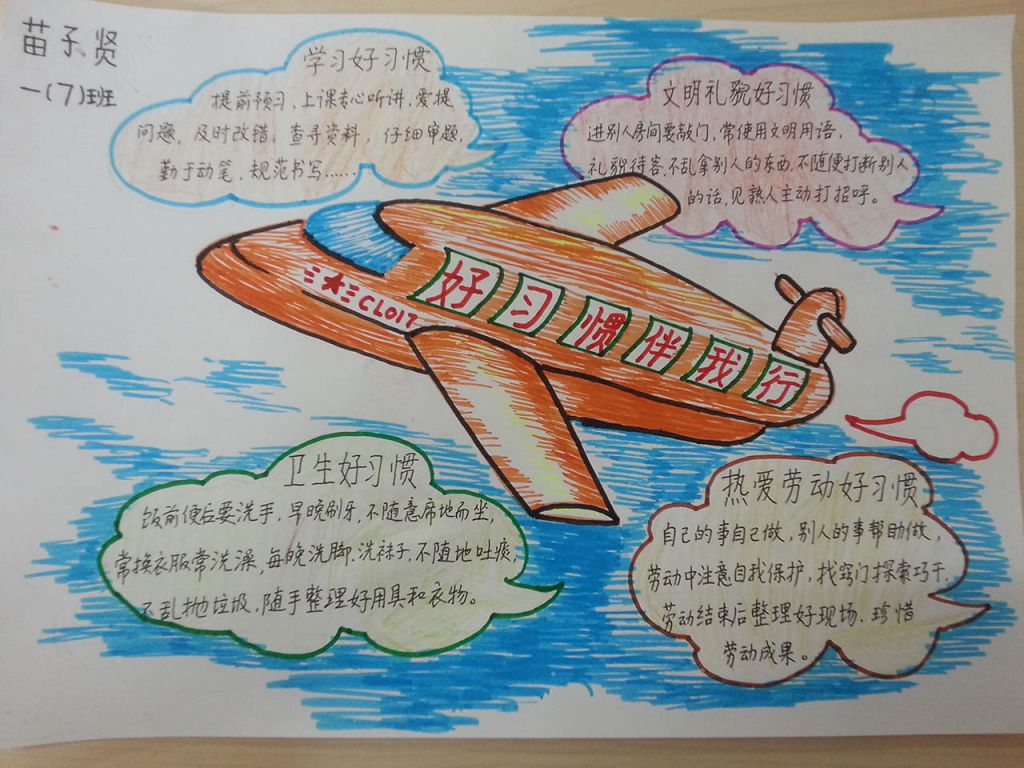 苗子贤
一(7)班
学习好习惯
提前预习,上课专心听讲,爱提
问题,及时改错,查寻资料,仔细审题,
勤于动笔、规范书写……
文明礼貌好习惯
进别人房间要敲门,常使用文明用语,
礼貌待客,不乱拿别人的东西,不随便打断别人
的话,见熟人主动打招呼。
三★三CL017
好习惯伴我行
卫生好习惯
饭前便后要洗手,早晚刷牙,不随意席地而坐,
常换衣服常洗澡,每晚洗脚、洗袜子,不随地吐痰,
不乱抛垃圾,随手整理好用具和衣物。
热爱劳动好习惯
自己的事自己做,别人的事帮助做,
劳动中注意自我保护,找窍门探索巧干,
劳动结束后整理好现场、珍惜
劳动成果。